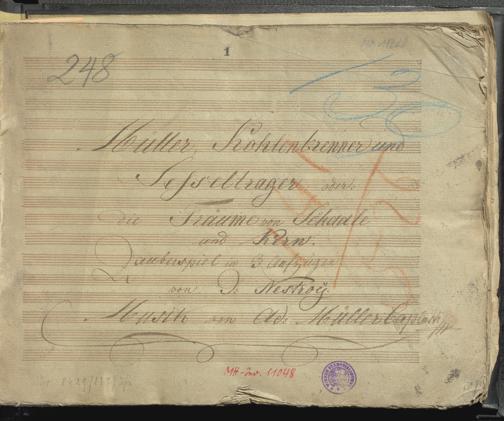 1
248
Müller, Kohlenbrenner und
Sesseltrager oder
die Träume von Schaale
und Kern.
Zauberspiel in 3 Aufzügen
von J. Nestroÿ
Musik von Ad. Müller Caplmstr
MH-Inv. 11048